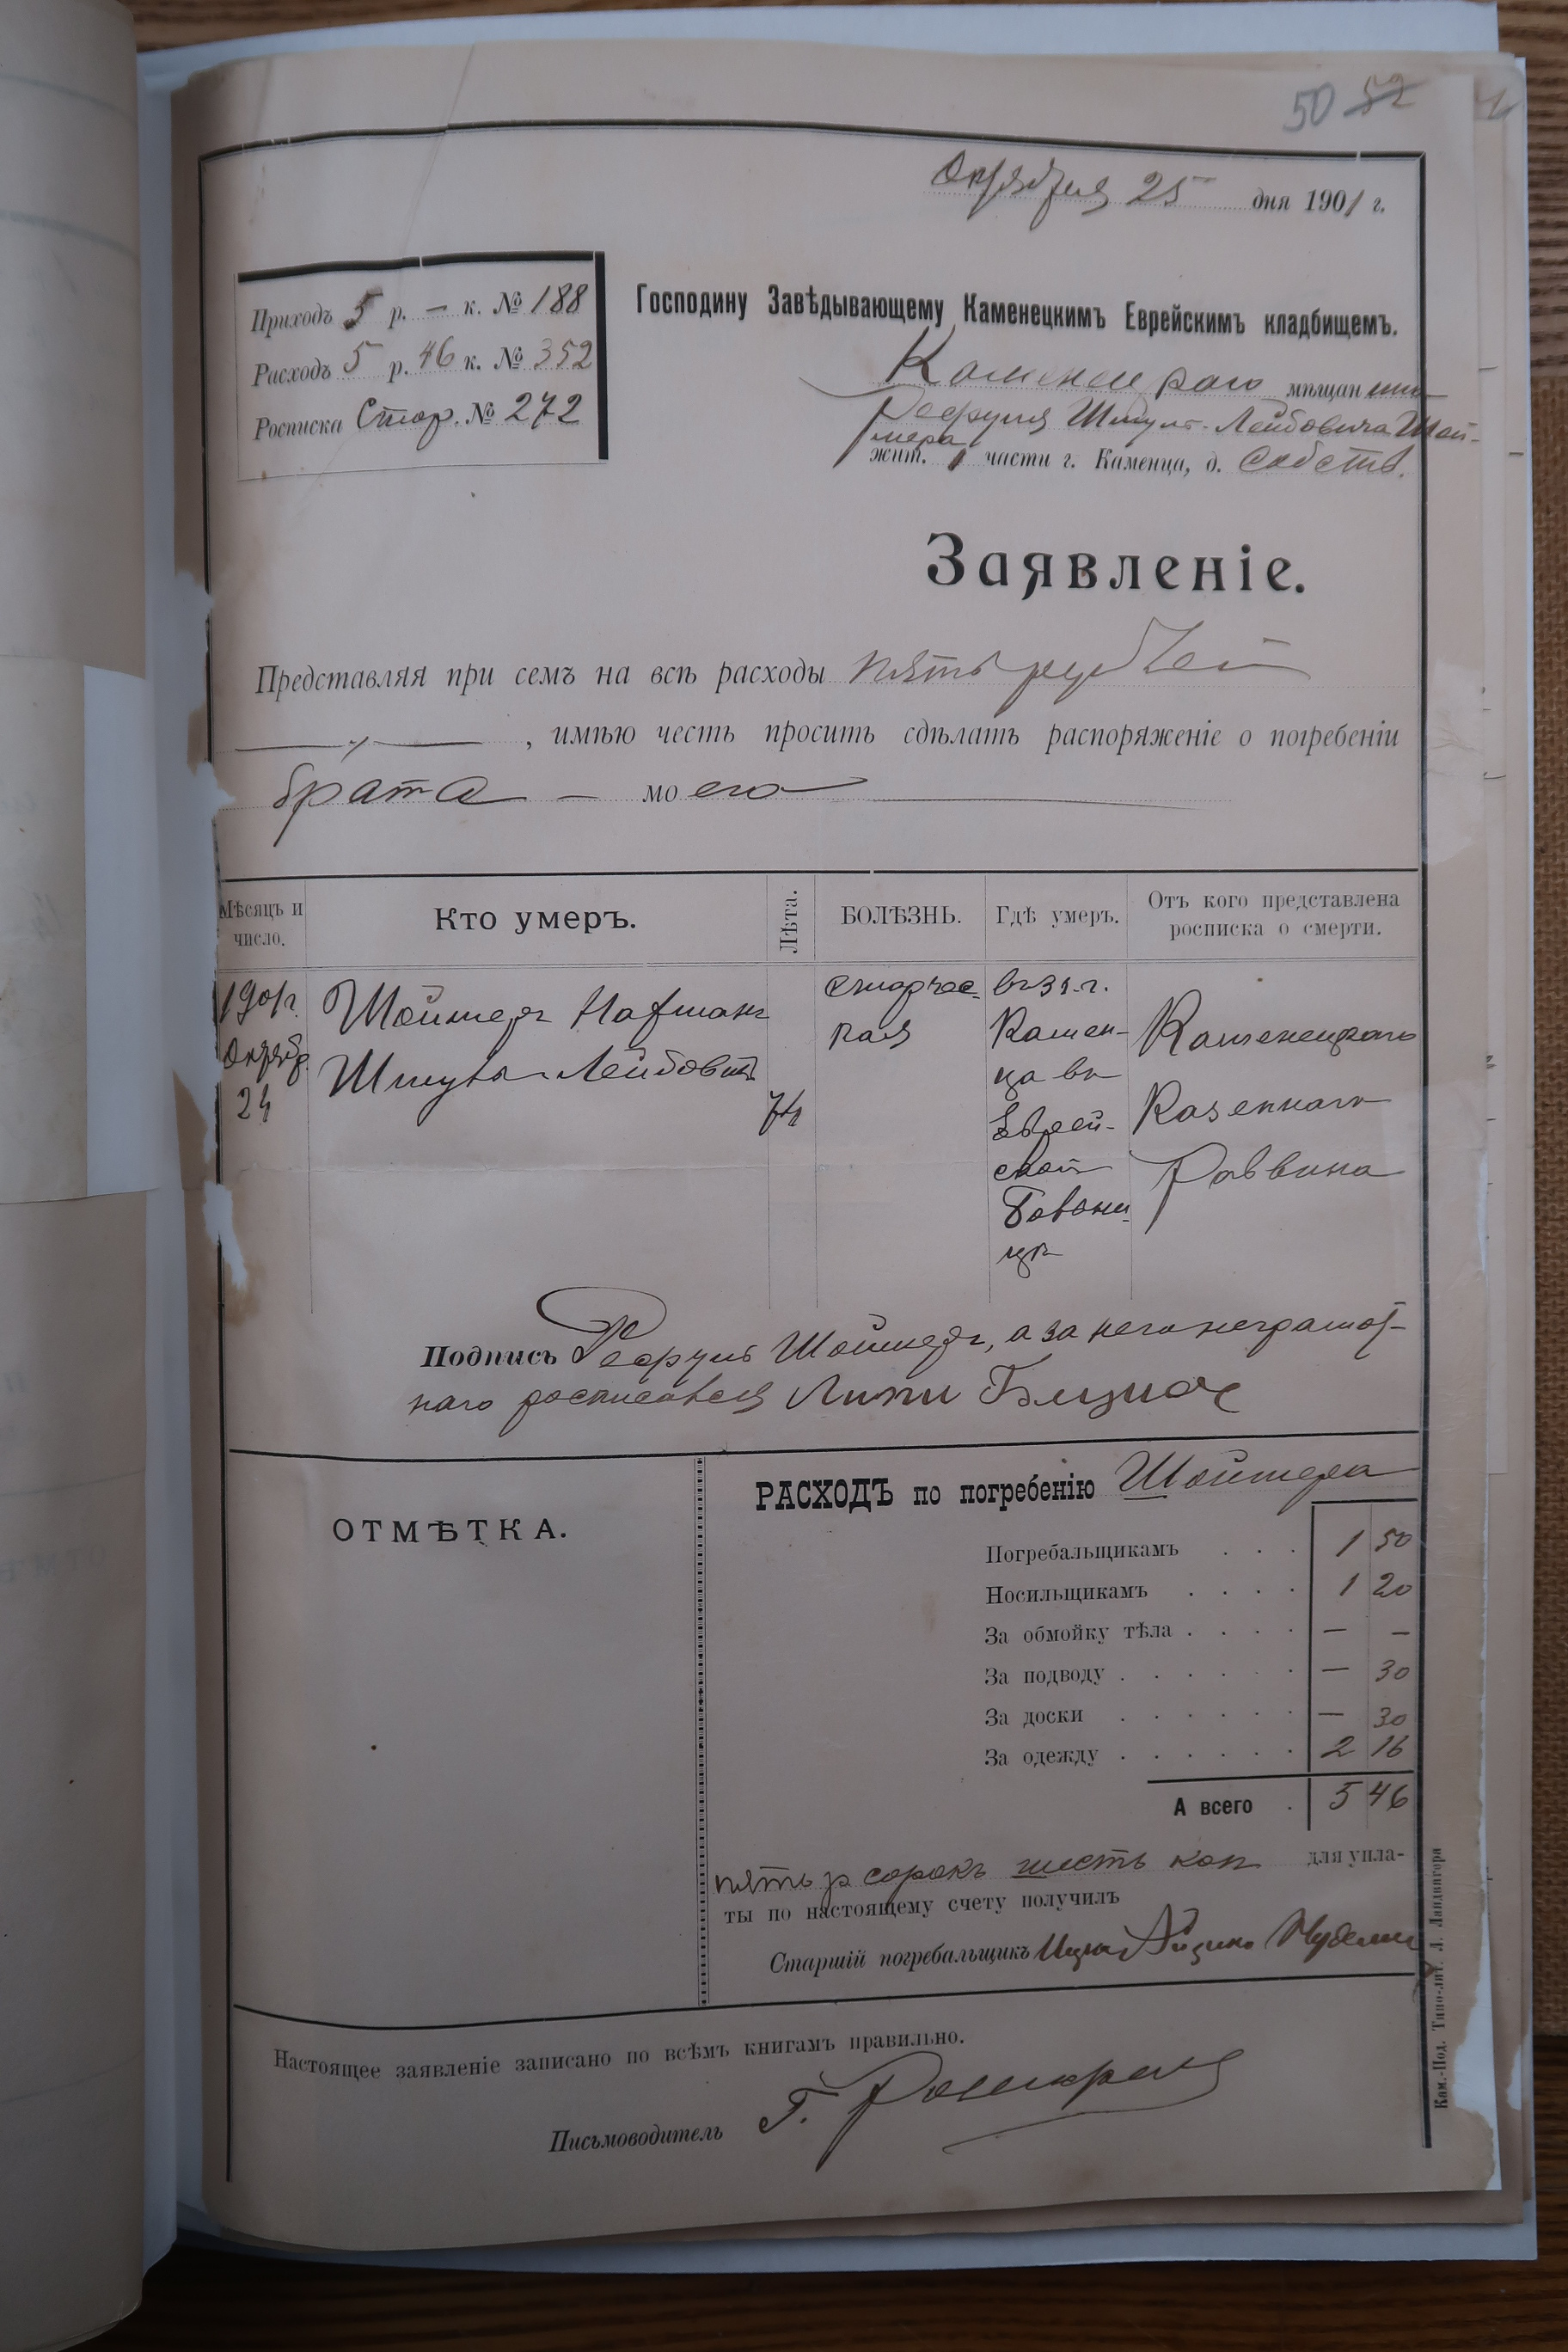 50 52
Октября 25 дня 1901 г.
Приходъ 5 р. — к. № 188
Расходъ 5 р. 46 к. № 352
Росписка Стор. № 272
Господину Завѣдывающему Каменецкимъ Еврейскимъ кладбищемъ.
Каменецкаго мѣщанина
Шмуль-Лейбовича Шой-
мера
жит. 1 части г. Каменца, д. Собств.
Заявленіе.
Представляя при семъ на всѣ расходы пять рублей
, имѣю честь просить сдѣлать распоряженіе о погребеніи
брата — моего
Мѣсяцъ и число. Кто умеръ. Лѣта. БОЛѢЗНЬ. Гдѣ умеръ. Отъ кого представлена росписка о смерти.
1901 г. Шоймеръ Нафтанъ старчес- въ г.
Октябр. Шмуль-Лейбовичъ кая Камен- Каменецкаго
24 74 ца въ Казеннаго
Еврей- Раввина
ской
Больни-
цѣ
Подпись Шоймеръ, а за него неграмот-
наго росписался Липи
РАСХОДЪ по погребенію Шоймера
ОТМѢТКА.
Погребальщикамъ . . . 1 50
Носильщикамъ . . . . 1 20
За обмойку тѣла . . . . — —
За подводу . . . . . . — 30
За доски . . . . . . — 30
За одежду . . . . . . 2 16
А всего . 5 46
пять р сорокъ шесть коп для упла-
ты по настоящему счету получилъ
Старшій погребальщикъ
Настоящее заявленіе записано по всѣмъ книгамъ правильно.
Письмоводитель Г.
Кам.-Под. Типо-лит. Л. Ландвигера